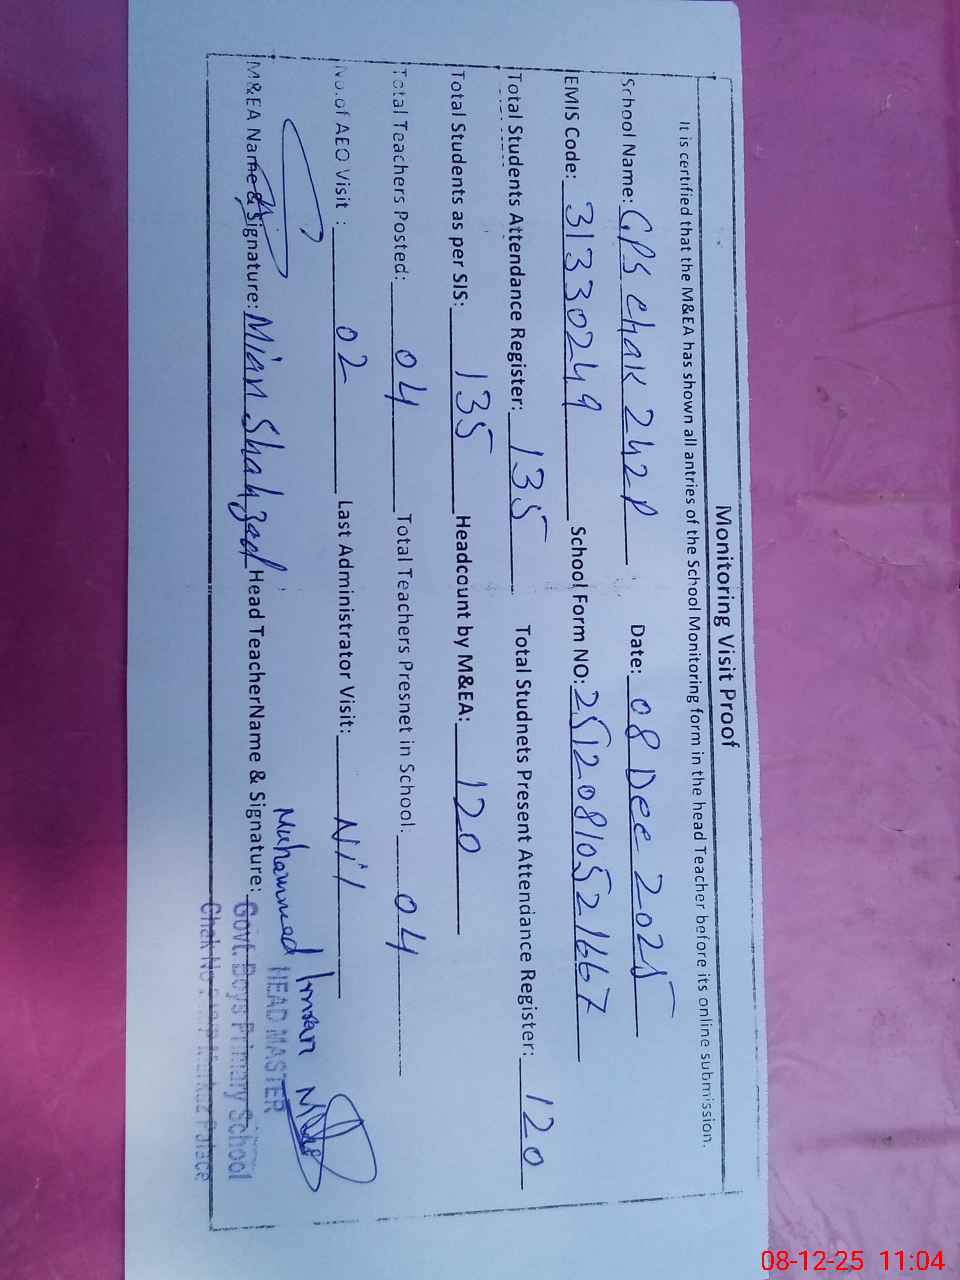 Monitoring Visit Proof
It is certified that the M&EA has shown all antries of the School Monitoring form in the head Teacher before its online submission.
School Name: GPS Chak 242P Date: 08 Dec 2025
EMIS Code: 31330249 School Form NO: 25120810521667
Total Students Attendance Register: 135 Total Studnets Present Attendance Register: 120
Total Students as per SIS: 135 Headcount by M&EA: 120
Total Teachers Posted: 04 Total Teachers Presnet in School. 04
No.of AEO Visit : 02 Last Administrator Visit: Nil
M&EA Name & Signature: Mian Shahzad Head TeacherName & Signature: Muhammad Imran
HEAD MASTER
Govt. Boys Primary School
Chak No
08-12-25 11:04